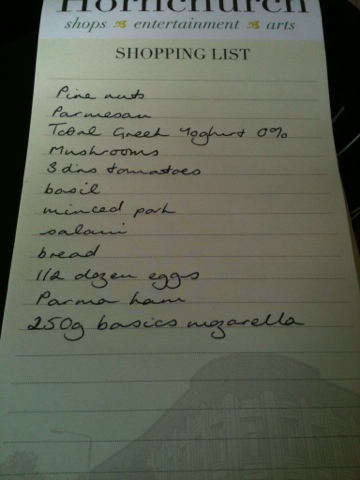 Hornchurch
shops entertainment arts
SHOPPING LIST
Pine nuts
Parmesan
Total Greek Yoghurt 0%
Mushrooms
3 tins tomatoes
basil
minced pork
salami
bread
1/2 dozen eggs
Parma ham
250g basics mozarella